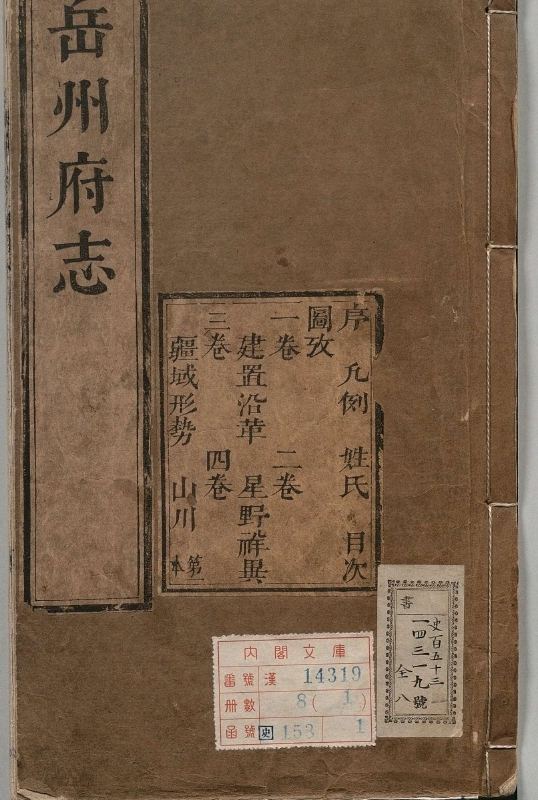 岳州府志
序 凡例 姓氏 目次
圖攷
一卷 二卷
建置沿革 星野祥異
三卷 四卷
疆域形勢 山川
第一本
書
史百五十三
一四三一九號
全八
内閣文庫
番號 漢 14319
册數 8 ( 1 )
函號 史 153 1